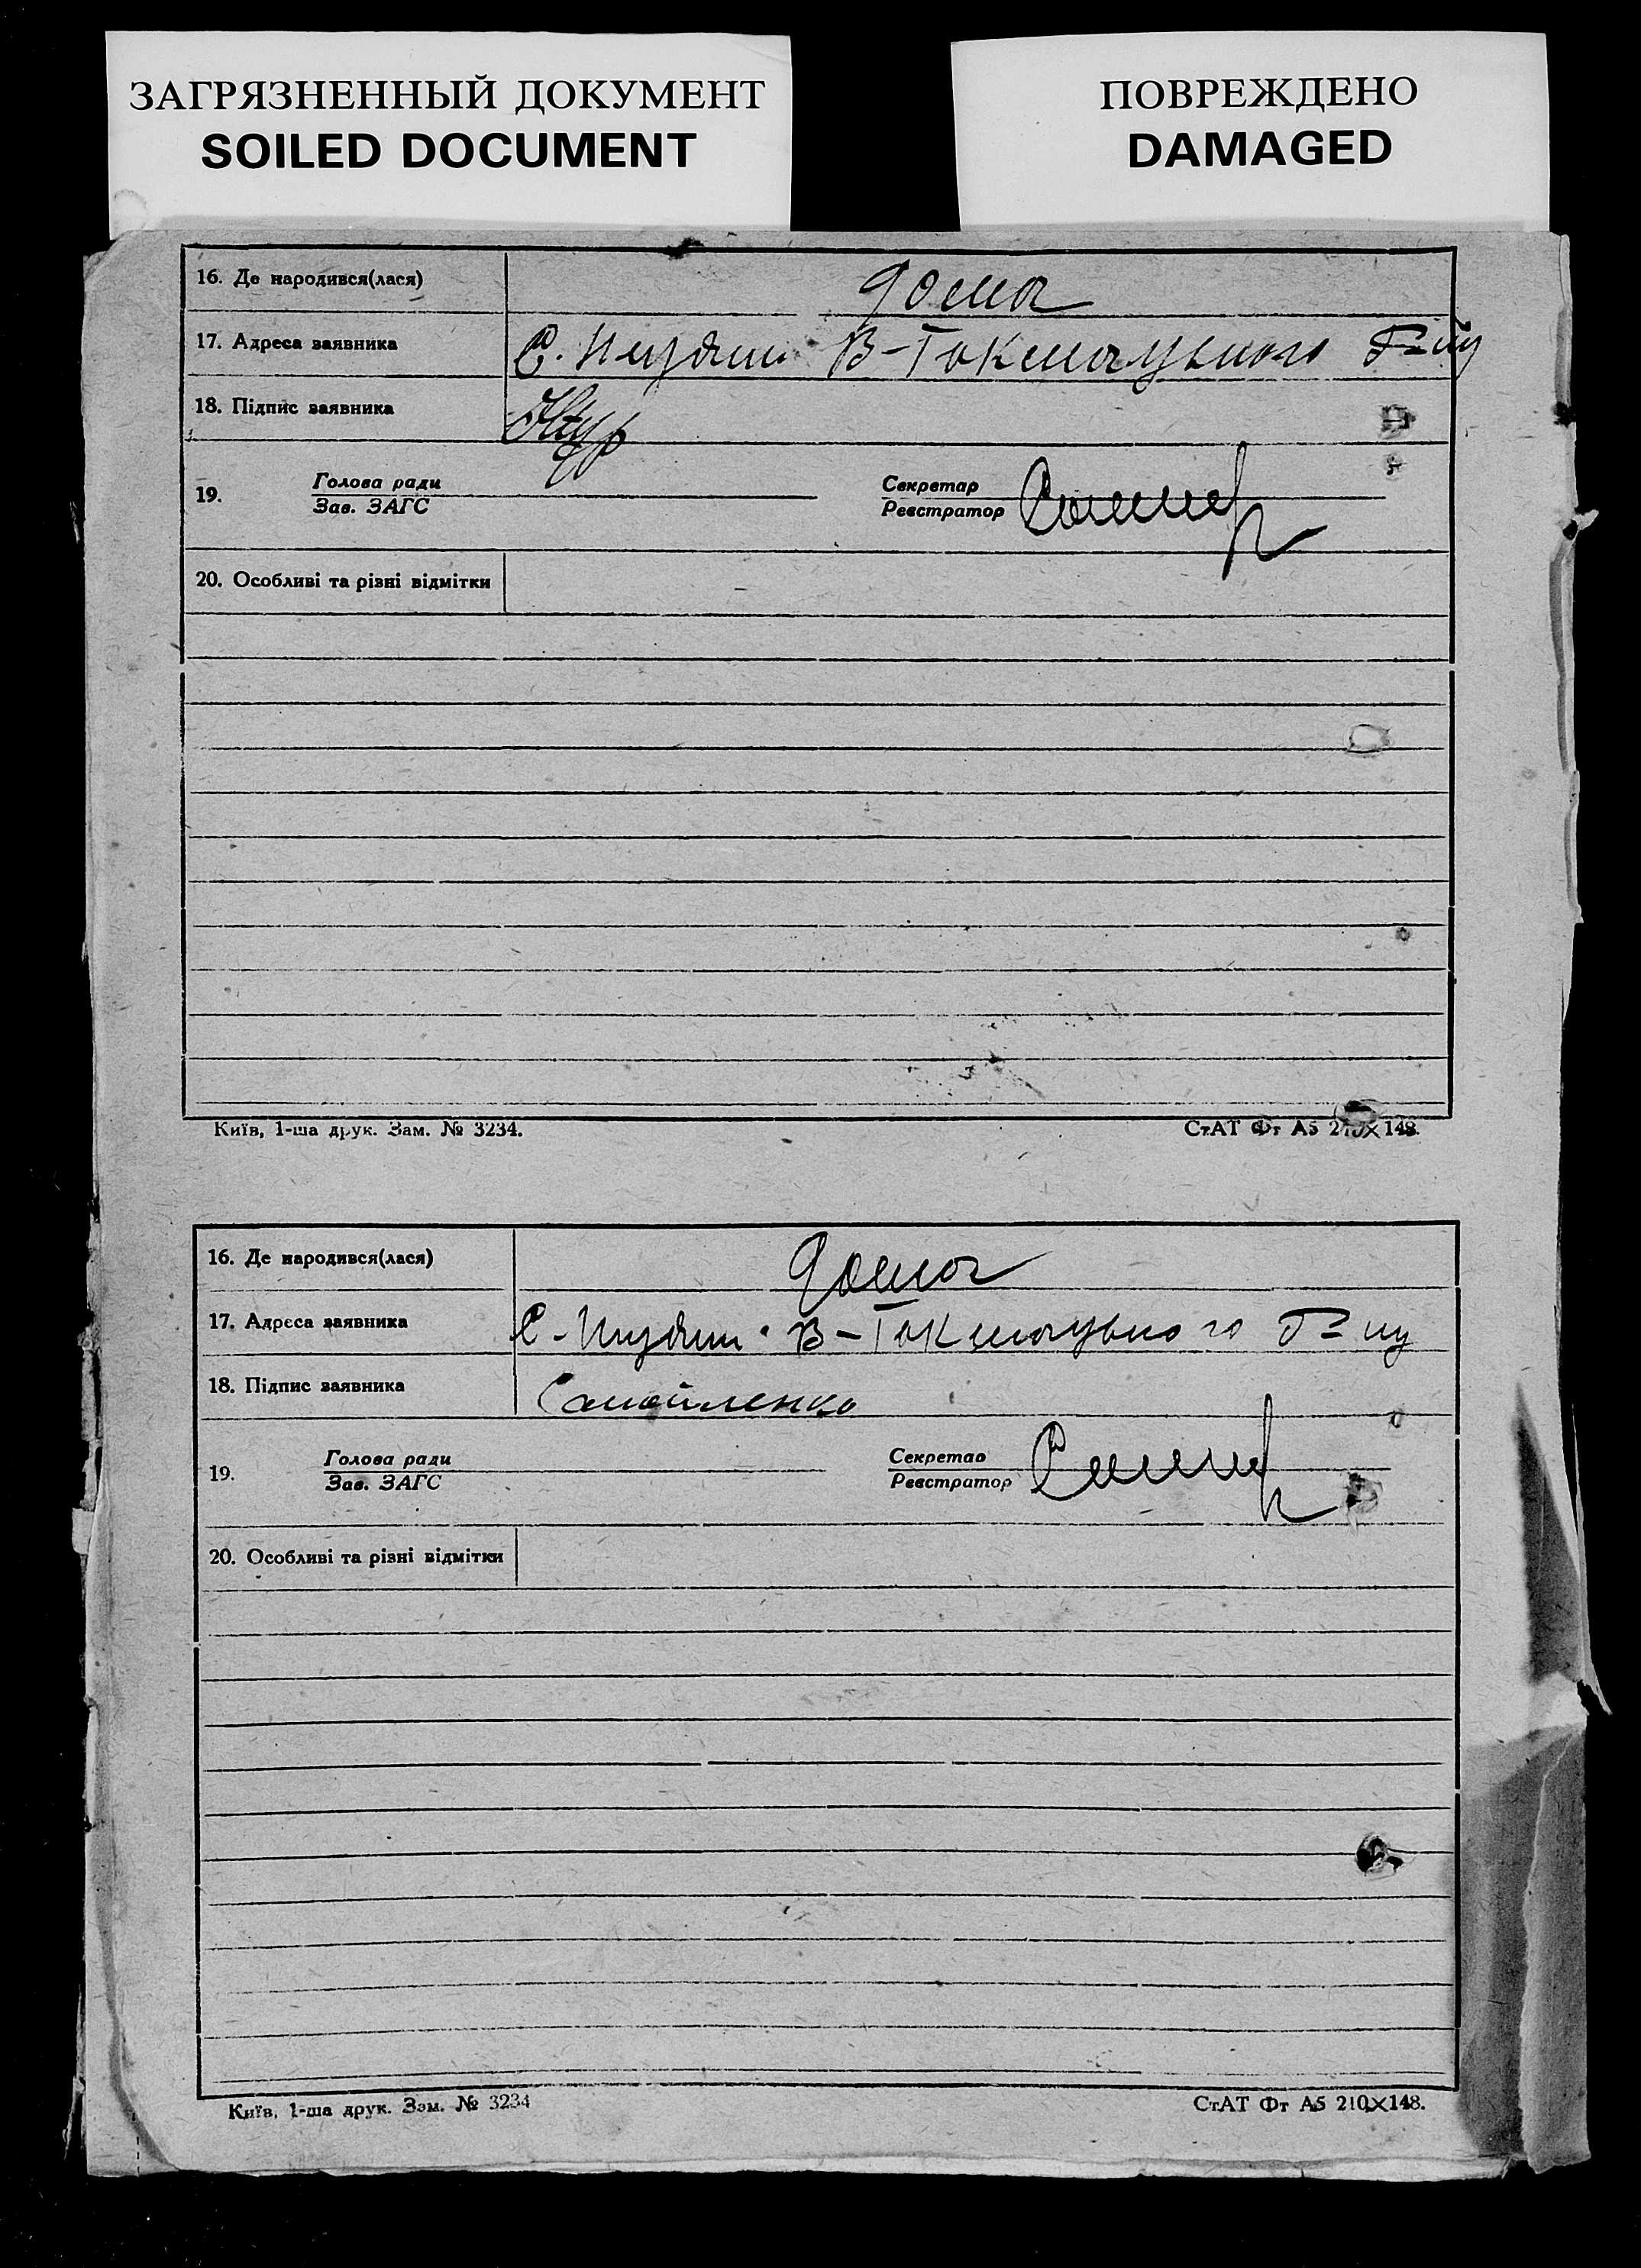 ЗАГРЯЗНЕННЫЙ ДОКУМЕНТ
SOILED DOCUMENT
ПОВРЕЖДЕНО
DAMAGED
16. Де народився(лася) дома
17. Адреса заявника С. В-Токмацького Р-ну
18. Підпис заявника
19. Голова ради
Зав. ЗАГС
Секретар
Реєстратор
20. Особливі та різні відмітки
Київ, 1-ша друк. Зам. № 3234.
СтАТ Фт А5 210×148.
16. Де народився(лася) дома
17. Адреса заявника С. В-Токмацького Р-ну
18. Підпис заявника Самойленко
19. Голова ради
Зав. ЗАГС
Секретар
Реєстратор
20. Особливі та різні відмітки
Київ, 1-ша друк. Зам. № 3234
СтАТ Фт А5 210×148.